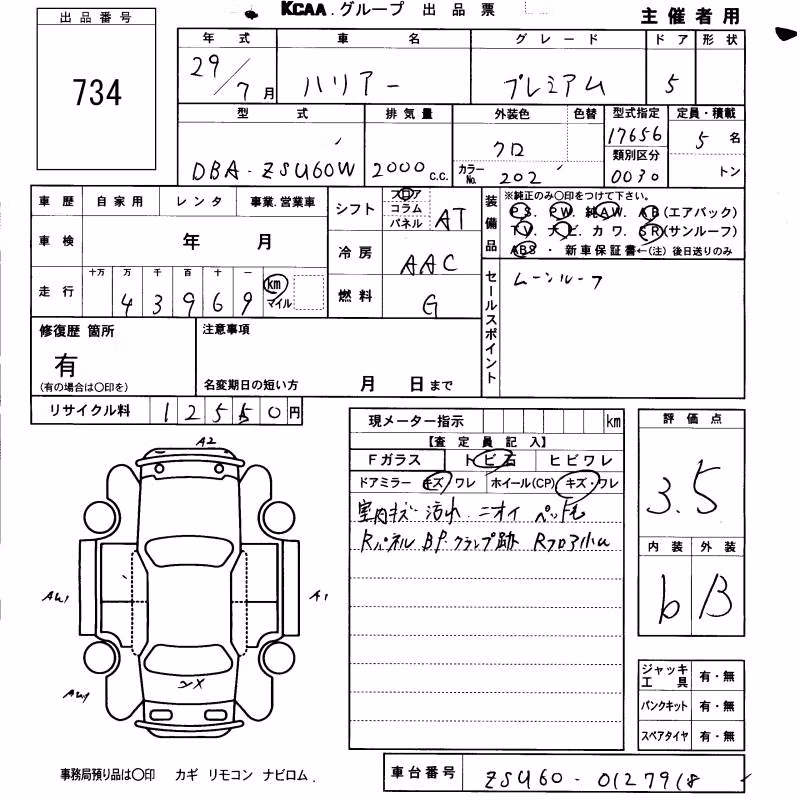 KCAA.グループ 出品票 主催者用
出品番号
734
年式 車名 グレード ドア 形状
29/7月 ハリアー プレミアム 5
型式 排気量 外装色 色替 型式指定 定員・積載
DBA-ZSU60W 2000c.c. クロ 17656 5名
カラーNo. 202 類別区分 0030 トン
車歴 自家用 レンタ 事業.営業車
車検 年 月
走行 十万 万 千 百 十 一
43969 km マイル
シフト フロア コラム パネル AT
冷房 AAC
燃料 G
装備品 ※純正のみ○印をつけて下さい。
PS. PW. 純AW. AB(エアバック)
TV. ナビ. カワ. SR(サンルーフ)
ABS・新車保証書←(注)後日送りのみ
セールスポイント ムーンルーフ
修復歴 箇所
有
(有の場合は○印を)
注意事項
名変期日の短い方 月 日まで
リサイクル料 12550円
現メーター指示 km
【査定員記入】
Fガラス トビ石 ヒビワレ
ドアミラー キズ/ワレ ホイール(CP) キズ・ワレ
室内キズ 汚れ ニオイ ペット毛
Rパネル BP.クランプ跡 Rフロア
評価点
3.5
内装 外装
b B
A2
A1
ジャッキ工具 有・無
パンクキット 有・無
スペアタイヤ 有・無
事務局預り品は○印 カギ リモコン ナビロム.
車台番号 ZSU60-0127918